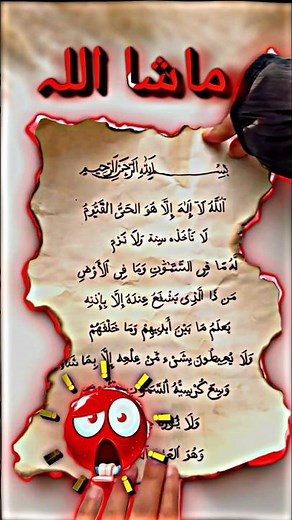 ماشا اللہ
بِسْمِ اللهِ الرَّحْمٰنِ الرَّحِيْمِ
اَللّٰهُ لَآ اِلٰهَ اِلَّا هُوَ الْحَيُّ الْقَيُّوْمُ
لَا تَأْخُذُهٗ سِنَةٌ وَّلَا نَوْمٌ
لَهٗ مَا فِى السَّمٰوٰتِ وَمَا فِى الْاَرْضِ
مَنْ ذَا الَّذِىْ يَشْفَعُ عِنْدَهٗ اِلَّا بِاِذْنِهٖ
يَعْلَمُ مَا بَيْنَ اَيْدِيْهِمْ وَمَا خَلْفَهُمْ
وَلَا يُحِيْطُوْنَ بِشَىْءٍ مِّنْ عِلْمِهٖٓ اِلَّا بِمَا شَآءَ
وَسِعَ كُرْسِيُّهُ السَّمٰوٰتِ
وَلَا
وَهُوَ